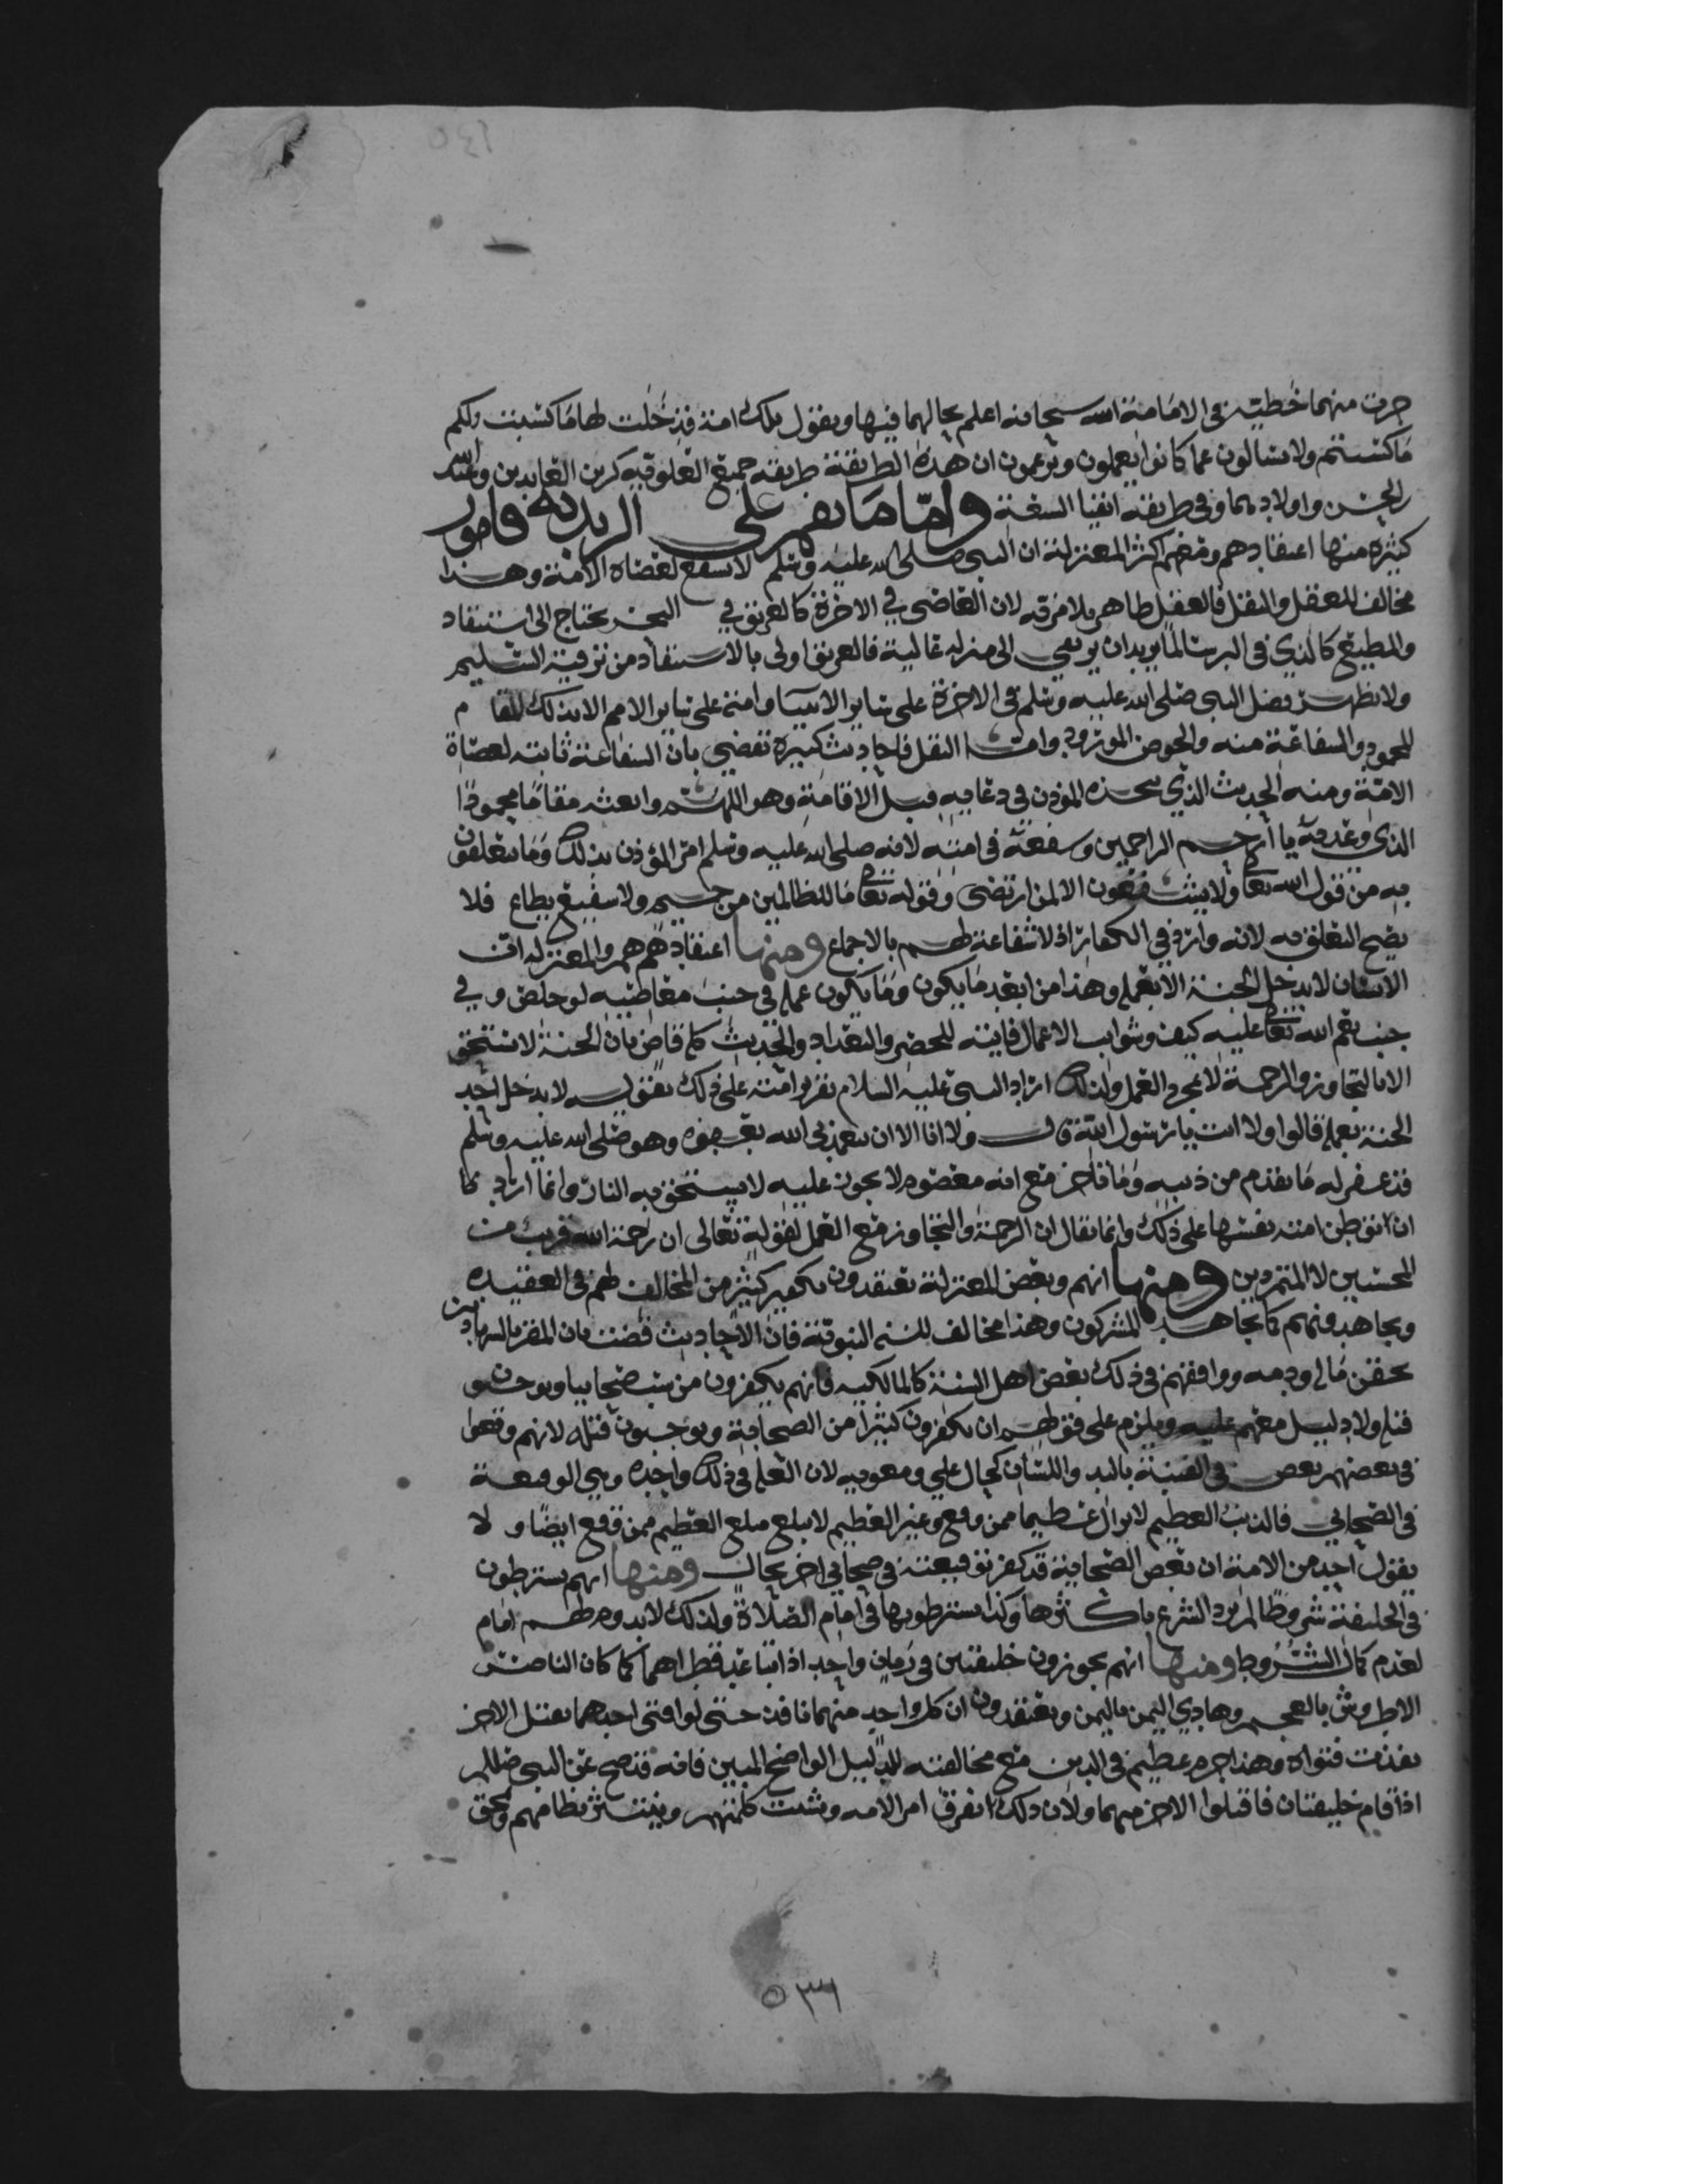 جرت منهما خطيئة في الامامة الله سبحانه اعلم بحالهما فيها ويقول تلك امة قد خلت لها ما كسبت ولكم
ما كسبتم ولا تسالون عما كانوا يعملون ويزعمون ان هذه الطريقة طريقة جميع العلوية كزين العابدين وعبد الله
بن الحسن واولادهما وفي طريقه السفة واما ما نقم على الزيدية فامور
كثيرة منها اعتقادهم ومنهم اكثر المعتزلة ان النبي صلى الله عليه وسلم لا يشفع لعصاة الامة وهذا
مخالف للعقل والنقل فالعقل ظاهر بلا مرقه لان العاصي في الاخرة كالغريق في البحر يحتاج الى استنقاذ
والمطيع كالذي في البر سالما يريد ان يرتقي الى منزلة عالية فالغريق اولى بالاستنقاذ من ترقية السليم
ولا يظهر فضل النبي صلى الله عليه وسلم في الاخرة على سائر الانبيا وامته على سائر الامم الا بذلك المقام
المحمود والشفاعة منه والحوض المورود واما النقل فاحاديث كثيرة تقضي بان الشفاعة ثابتة لعصاة
الامة ومنه الحديث الذي المؤذن في دعايه قبل الاقامة وهو اللهم وابعثه مقاما محمودا
الذي وعدته يا ارحم الراحمين وشفعه في امته لانه صلى الله عليه وسلم امر المؤذن بذلك وما يتعلقون
به من قول الله تعالى ولا يشفعون الا لمن ارتضى وقوله تعالى ما للظالمين من حميم ولا شفيع يطاع فلا
يصح التعلق به لانه وارد في الكفار اذ لا شفاعة لهم بالاجماع ومنها اعتقادهم هم والمعتزلة ان
الانسان لا يدخل الجنة الا بعمله وهذا من ابعد ما يكون وما يكون عمله في جنب معاصيه لو خلص وفي
جنب نعم الله تعالى عليه كيف وشوايب الاعمال فايتة للحصر والتعداد والحديث كله قاض بان الجنة لا تستحق
الا بالتجاوز والرحمة لا بمجرد العمل ولذلك اراد النبي عليه السلام تقرير امته على ذلك بقوله لا يدخل احد
الجنة بعمله قالوا ولا انت يا رسول الله قال ولا انا الا ان يتغمدني الله بعفوه وهو صلى الله عليه وسلم
قد غفر له ما تقدم من ذنبه وما تاخر مع انه معصوم لا يجوز عليه لا يستحق به النار وانما اراد
ان توطن امته نفسها على ذلك وانما يقال ان الرحمة والتجاوز مع العمل لقوله تعالى ان رحمة الله قريب من
المحسنين لا المتمردين ومنها انهم وبعض المعتزلة يعتقدون تكفير كثير من المخالف لهم في العقيدة
ويجاهد منهم كما يجاهد المشركون وهذا مخالف للسنة النبوية فان الاحاديث قضت بان المقر بالشهادتين
محقن مالا ودمه ووافقهم في ذلك بعض اهل السنة كالمالكيه فانهم يكفرون من سب صحابيا ويوجبون
قتله ولا دليل معهم عليه ويلزم على قولهم ان يكفرون كثيرا من الصحابة ويوجبون قتله لانهم وقعوا
في بعضهم بعض في الفتنة باليد واللسان كحال علي ومعويه لان العلة في ذلك واحدة وهي الوقيعة
في الصحابي فالذنب العظيم لا يزال عظيما ممن وقع وغير العظيم لا يبلغ مبلغ العظيم ممن وقع ايضا ولا
يقول احد من الامة ان بعض الصحابة قد كفر بوقيعته في صحابي اخر بحال ومنها انهم يشترطون
في الخليفة شروطا لم يرد الشرع باكثرها وكذا يشترطونها في امام الصلاة ولذلك لا يدوم لهم امام
لعدم كمال الشروط ومنها انهم يجوزون خليفتين في زمان واحد اذا تباعد قطراهما كما كان الناصر
الاطروش بالعجم وهادي اليمن باليمن ويعتقدون ان كل واحد منهما نافذ حتى لو افتى احدهما بقتل الاخر
نفذت فتواه وهذا جرم عظيم في الدين مع مخالفته للدليل الواضح المبين فانه قد صح عن النبي صللم
اذا قام خليفتان فاقتلوا الاخر منهما ولان ذلك تفرق امر الامه وتشتت كلمتهم وينتثر نظامهم ولحق
٥٣٦